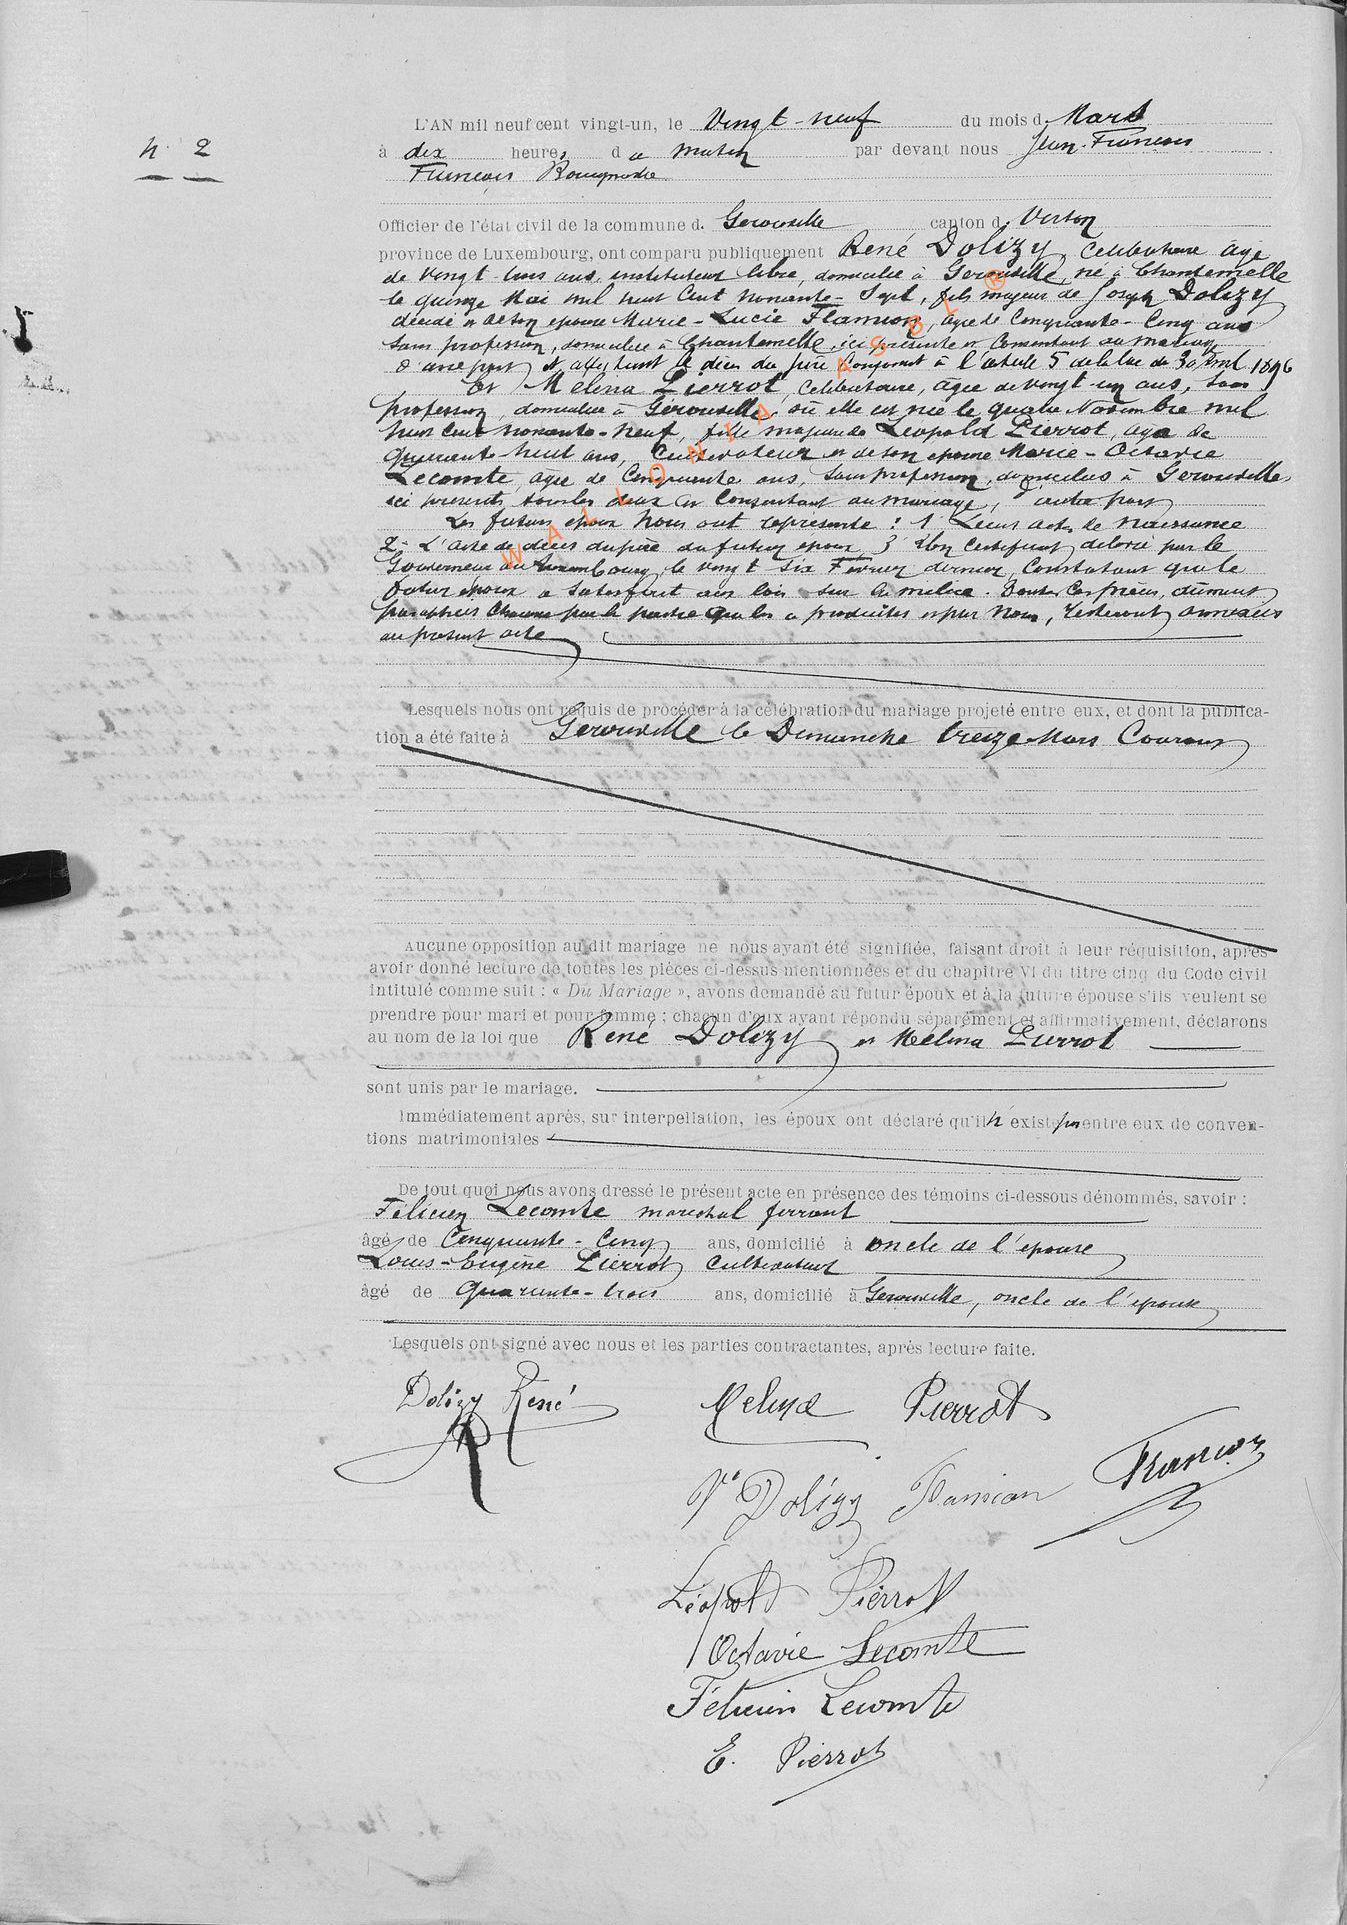 N 2
L'AN mil neuf cent vingt-un, le Vingt-neuf du mois d. Mars
à dix heures du matin par devant nous Jean-François
François
Officier de l'état civil de la commune d. Gerouville canton d. Virton
province de Luxembourg, ont comparu publiquement René Dolizy, Célibataire âgé
de vingt trois ans, instituteur libre, domicilié à Gerouville, né à Chantemelle
le quinze Mai mil huit Cent nonante-Sept, fils majeur de Joseph Dolizy
décédé et de son épouse Marie-Lucie Flamion, âgée de Cinquante-Cinq ans
sans profession, domiciliée à Chantemelle, ici présente et Consentant au mariage,
d'une part, et attestant le décès du père Conforment à l'article 5 de la loi du 30 Avril 1896
Et Melina Pierrot, Célibataire, âgée de vingt-un ans, sans
profession, domiciliée à Gérouville, où elle est née le quatre Novembre mil
huit Cent nonante-neuf, fille majeure de Léopold Pierrot, âgé de
quarante-huit ans, Cultivateur et de son épouse Marie-Octavie
Lecomte, âgée de Cinquante ans, sans profession, domiciliés à Gerouville
ici présents tous les deux et Consentant au mariage, d'autre part
Les futurs époux Nous ont représenté : 1° Leurs actes de naissance
2° L'acte de décès du père du futur époux 3° Un Certificat délivré par le
Gouverneur du Luxembourg, le vingt six Février dernier, Constatant que le
futur époux a satisfait aux lois sur la milice. Toutes Ces pièces, dûment
paraphées Chacune par la partie qui les a produites et par Nous, resteront annexées
au présent acte
Lesquels nous ont requis de procéder à la célébration du mariage projeté entre eux, et dont la publica-
tion a été faite à Gerouville le Dimanche treize Mars Courant
Aucune opposition au dit mariage ne nous ayant été signifiée, faisant droit à leur réquisition, après
avoir donné lecture de toutes les pièces ci-dessus mentionnées et du chapitre VI du titre cinq du Code civil
intitulé comme suit : « Du Mariage », avons demandé au futur époux et à la future épouse s'ils veulent se
prendre pour mari et pour femme ; chacun d'eux ayant répondu séparément et affirmativement, déclarons
au nom de la loi que René Dolizy et Mélina Pierrot
sont unis par le mariage.
Immédiatement après, sur interpellation, les époux ont déclaré qu'il n'existe pas entre eux de conven-
tions matrimoniales
De tout quoi nous avons dressé le présent acte en présence des témoins ci-dessous dénommés, savoir :
Félicien Lecomte maréchal ferrant
âgé de Cinquante-Cinq ans, domicilié à oncle de l'épouse
Louis-Eugène Pierrot Cultivateur
âgé de Quarante-trois ans, domicilié à Gerouville, oncle de l'épouse
Lesquels ont signé avec nous et les parties contractantes, après lecture faite.
Dolizy René
Melina Pierrot
Ve Dolizy Flamion
François
Léopold Pierrot
Octavie Lecomte
Félicien Lecomte
E. Pierrot
WALLONIA ASBL ®